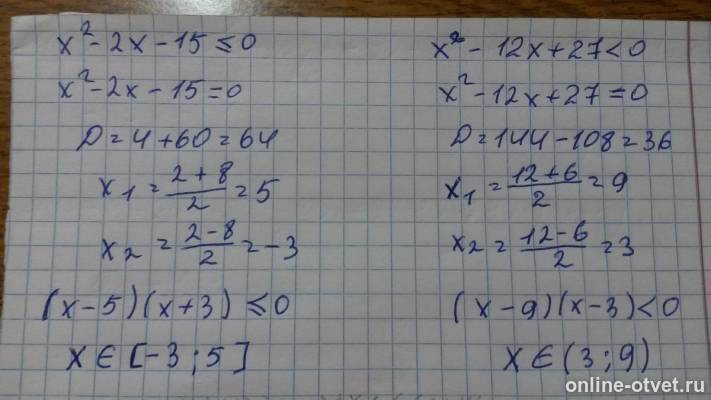 x² - 2x - 15 ≤ 0
x² - 2x - 15 = 0
D = 4 + 60 = 64
x₁ = (2 + 8)/2 = 5
x₂ = (2 - 8)/2 = -3
(x - 5)(x + 3) ≤ 0
x ∈ [-3 ; 5]
x² - 12x + 27 < 0
x² - 12x + 27 = 0
D = 144 - 108 = 36
x₁ = (12 + 6)/2 = 9
x₂ = (12 - 6)/2 = 3
(x - 9)(x - 3) < 0
x ∈ (3 ; 9)
online-otvet.ru